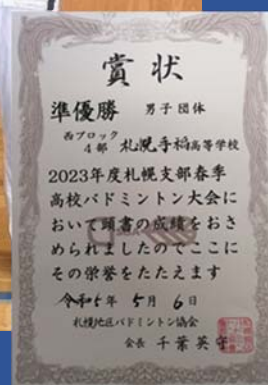 賞状
準優勝 男子団体
西ブロック
4部 札幌手稲高等学校
2023年度札幌支部春季
高校バドミントン大会に
おいて頭書の成績をおさ
められましたのでここに
その栄誉をたたえます
令和5年 5月 6日
札幌地区バドミントン協会
会長 千葉英守